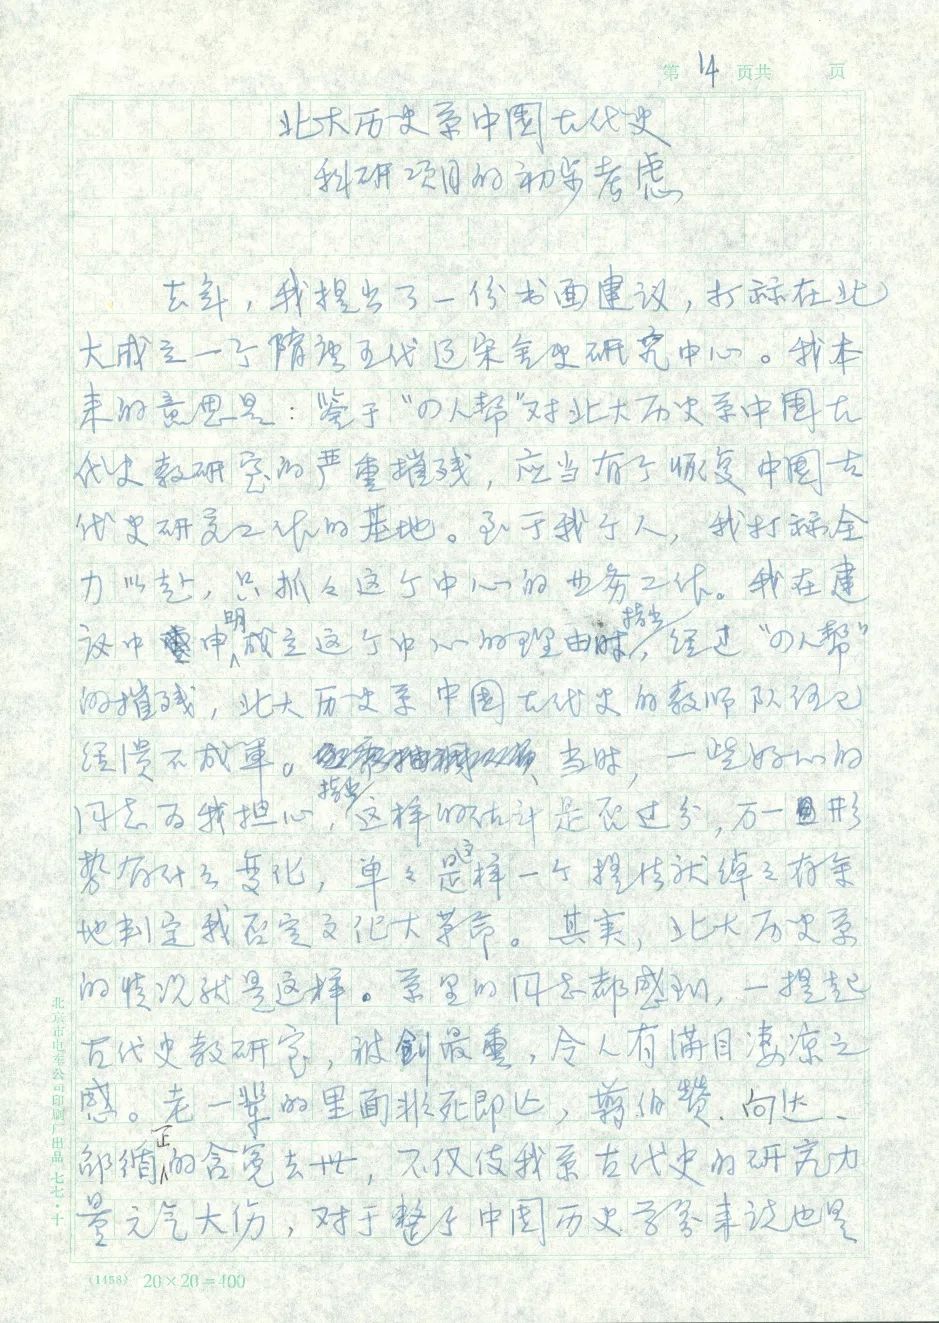 第 14 页共 页
北大历史系中国古代史
科研项目的初步考虑
去年，我提出了一份书面建议，打算在北
大成立一个隋唐五代辽宋金史研究中心。我本
来的意思是：鉴于“四人帮”对北大历史系中国古
代史教研室的严重摧残，应当有个恢复中国古
代史研究工作的基地。至于我个人，我打算全
力以赴，只抓抓这个中心的业务工作。我在建
议中申明成立这个中心的理由时指出，经过“四人帮”
的摧残，北大历史系中国古代史的教师队伍已
经溃不成军。当时，一些好心的
同志为我担心，指出这样的估计是否过分，万一形
势有什么变化，单单是这样一个提法就绰绰有余
地判定我否定文化大革命。其实，北大历史系
的情况就是这样。系里的同志都感到，一提起
古代史教研室，被创最重，令人有满目凄凉之
感。老一辈的里面非死即亡，翦伯赞、向达、
邵循正的含冤去世，不仅使我系古代史的研究力
量元气大伤，对于整个中国历史学界来说也是
北京市电车公司印刷厂出品 七七·十
（1458） 20×20＝400